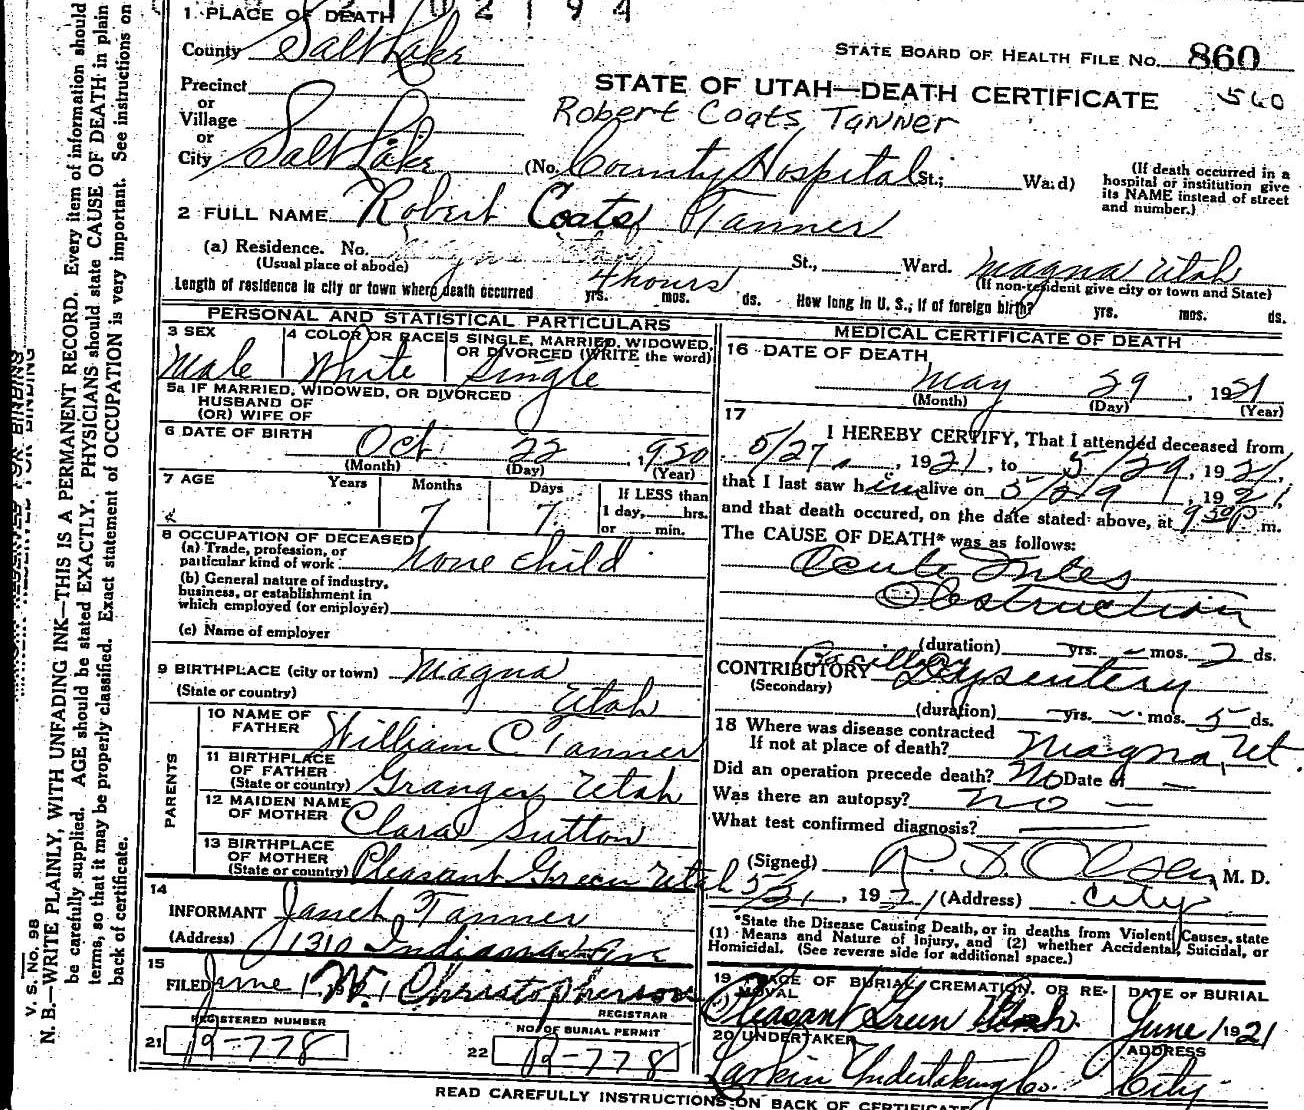 1 PLACE OF DEATH
County Salt Lake
STATE BOARD OF HEALTH FILE No. 860
Precinct
or
Village
or
City Salt Lake
STATE OF UTAH—DEATH CERTIFICATE 560
Robert Coats Tanner
(No. County Hospital St.; Ward)
(If death occurred in a
hospital or institution give
its NAME instead of street
and number.)
2 FULL NAME Robert Coats Tanner
(a) Residence. No. St., Ward. Magna Utah
(Usual place of abode) (If non-resident give city or town and State)
Length of residence in city or town where death occurred yrs. mos. ds. 4 hours How long in U. S., if of foreign birth? yrs. mos. ds.
PERSONAL AND STATISTICAL PARTICULARS
3 SEX Male
4 COLOR OR RACE White
5 SINGLE, MARRIED, WIDOWED,
OR DIVORCED (WRITE the word)
Single
5a IF MARRIED, WIDOWED, OR DIVORCED
HUSBAND OF
(OR) WIFE OF
6 DATE OF BIRTH Oct 22, 1920
(Month) (Day) (Year)
7 AGE Years Months Days
7 7
If LESS than
1 day, hrs.
or min.
8 OCCUPATION OF DECEASED
(a) Trade, profession, or
particular kind of work none child
(b) General nature of industry,
business, or establishment in
which employed (or employer)
(c) Name of employer
9 BIRTHPLACE (city or town) Magna
(State or country) Utah
PARENTS
10 NAME OF
FATHER William C Tanner
11 BIRTHPLACE
OF FATHER
(State or country) Granger Utah
12 MAIDEN NAME
OF MOTHER Clara Sutton
13 BIRTHPLACE
OF MOTHER
(State or country) Pleasant Green Utah
14
INFORMANT Janet Tanner
(Address) 1310 Indiana Ave
15
FILED June 1 W. Christopherson
REGISTRAR
REGISTERED NUMBER
21 R-778
NO. OF BURIAL PERMIT
22 R-778
MEDICAL CERTIFICATE OF DEATH
16 DATE OF DEATH
May 29, 1921
(Month) (Day) (Year)
17
I HEREBY CERTIFY, That I attended deceased from
5/27, 1921, to 5/29, 1921,
that I last saw him alive on 5/29, 1921,
and that death occured, on the date stated above, at 9 30 P m.
The CAUSE OF DEATH* was as follows:
Acute Intes
Obstruction
(duration) yrs. mos. 2 ds.
CONTRIBUTORY Bacillary Dysentery
(Secondary)
(duration) yrs. mos. 5 ds.
18 Where was disease contracted
If not at place of death? Magna, Ut.
Did an operation precede death? No Date of
Was there an autopsy? no
What test confirmed diagnosis?
(Signed) Olsen, M. D.
5/31, 1921 (Address) City
*State the Disease Causing Death, or in deaths from Violent Causes, state
(1) Means and Nature of Injury, and (2) whether Accidental, Suicidal, or
Homicidal. (See reverse side for additional space.)
19 PLACE OF BURIAL, CREMATION, OR RE-
MOVAL
Pleasant Green Utah
DATE OF BURIAL
June 1 1921
20 UNDERTAKER
Larkin Undertaking Co.
ADDRESS
City
READ CAREFULLY INSTRUCTIONS ON BACK OF CERTIFICATE
V. S. No. 98
N. B.—WRITE PLAINLY, WITH UNFADING INK—THIS IS A PERMANENT RECORD. Every item of information should
be carefully supplied. AGE should be stated EXACTLY. PHYSICIANS should state CAUSE OF DEATH in plain
terms, so that it may be properly classified. Exact statement of OCCUPATION is very important. See instructions on
back of certificate.